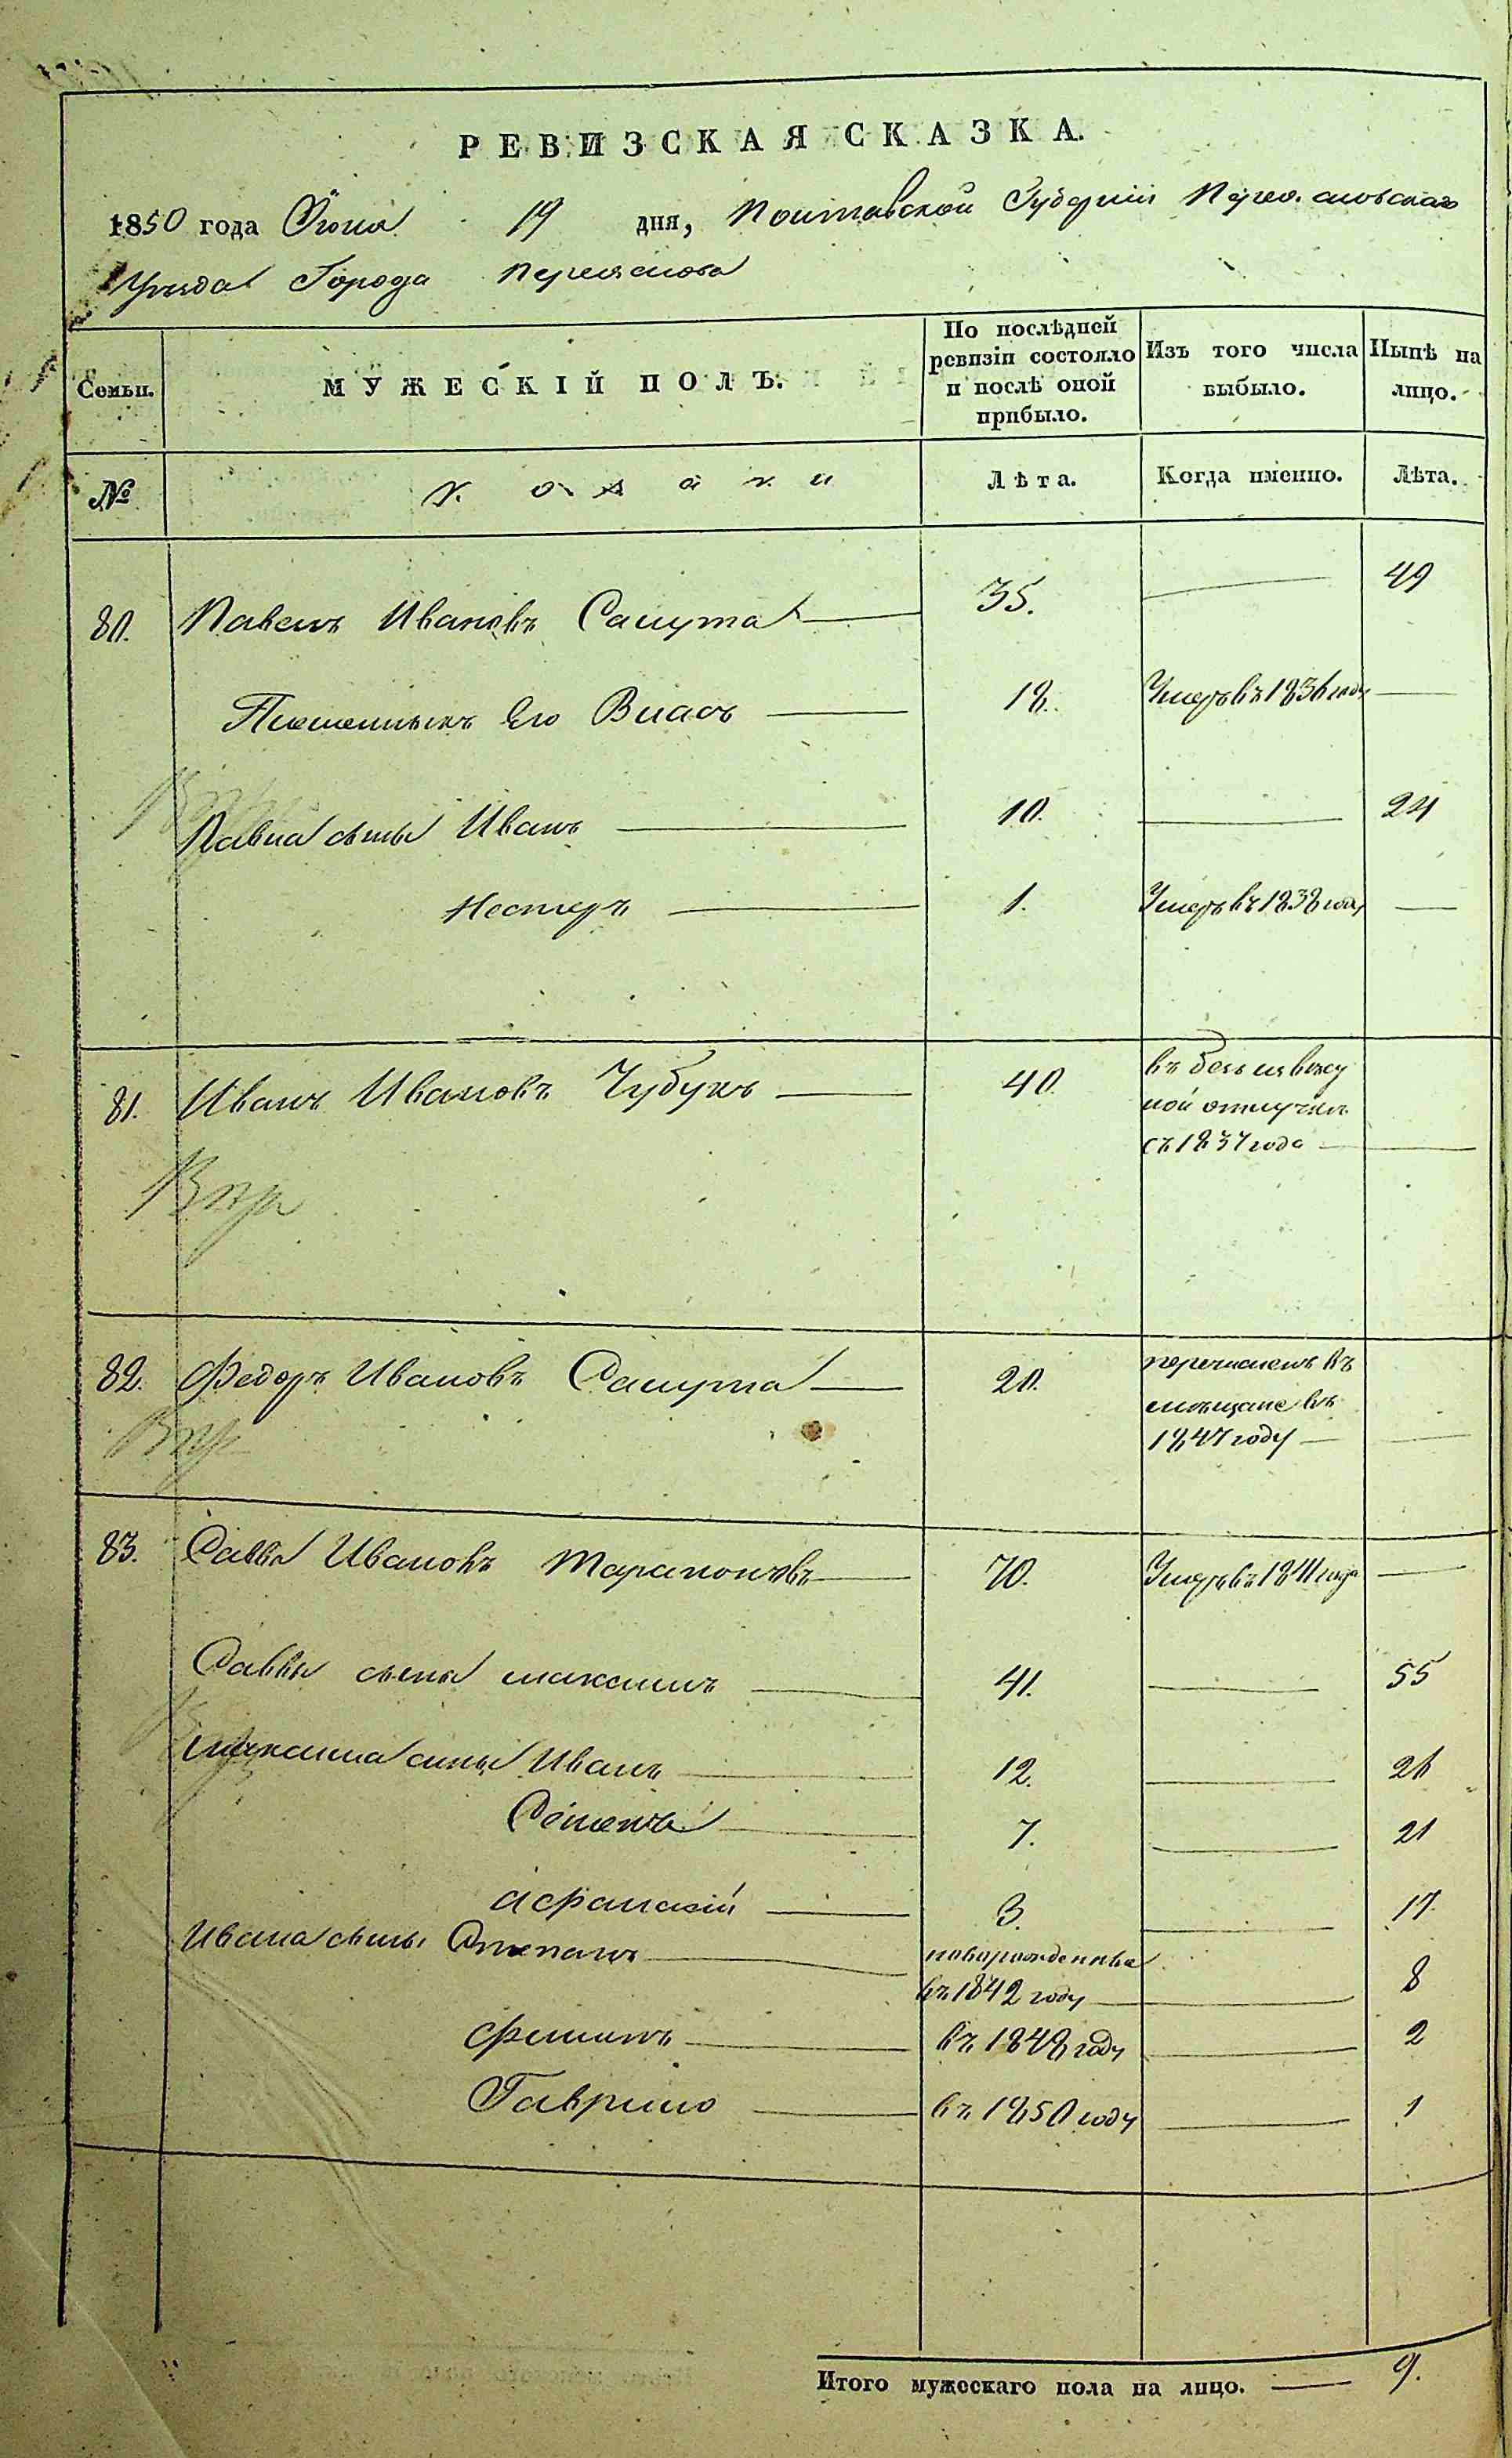 РЕВИЗСКАЯ СКАЗКА.
1850 года Июня 19 дня, Полтавской Губерніи Переяславскаго
Уѣзда Города Переяслова
Семьи. МУЖЕСКІЙ ПОЛЪ. По послѣдней ревизіи состояло и послѣ оной прибыло. Изъ того числа выбыло. Нынѣ на лицо.
№ Козаки Лѣта. Когда именно. Лѣта.
80. Павелъ Ивановъ Салута 35. 49
Племенникъ Его Власъ 18. Умеръ въ 1836 году
Павла сыны Иванъ 10. 24
Нестеръ 1. Умеръ въ 1838 году
81. Иванъ Ивановъ Чубукъ 40. въ безъизвѣсу
ной отлучкѣ
съ 1837 года
Впр
82. Федоръ Ивановъ Салута 20. перечисленъ въ
мѣщане въ
1847 году
Впр
83. Савва Ивановъ 70. Умеръ въ 1841 года
Саввы сынъ максимъ 41. 55
максима сыны Иванъ 12. 26
Семенъ 7. 21
Афанасій 3. 17.
Ивана сыны Степанъ новорожденные
въ 1842 году 8
филипъ въ 1848 году 2
Гаврило въ 1850 году 1
Итого мужескаго пола на лицо. 9.